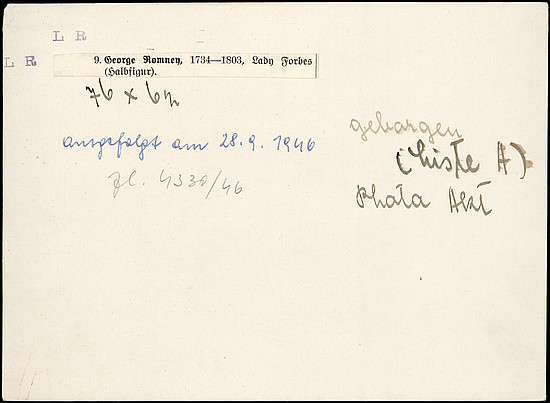 L R
L R
9. George Romney, 1734—1803, Lady Forbes
(Halbfigur).
76 x
ausgefolgt am 28. 9. 1946
Zl. 4330/46
geborgen
(Liste A)
Photo Akt